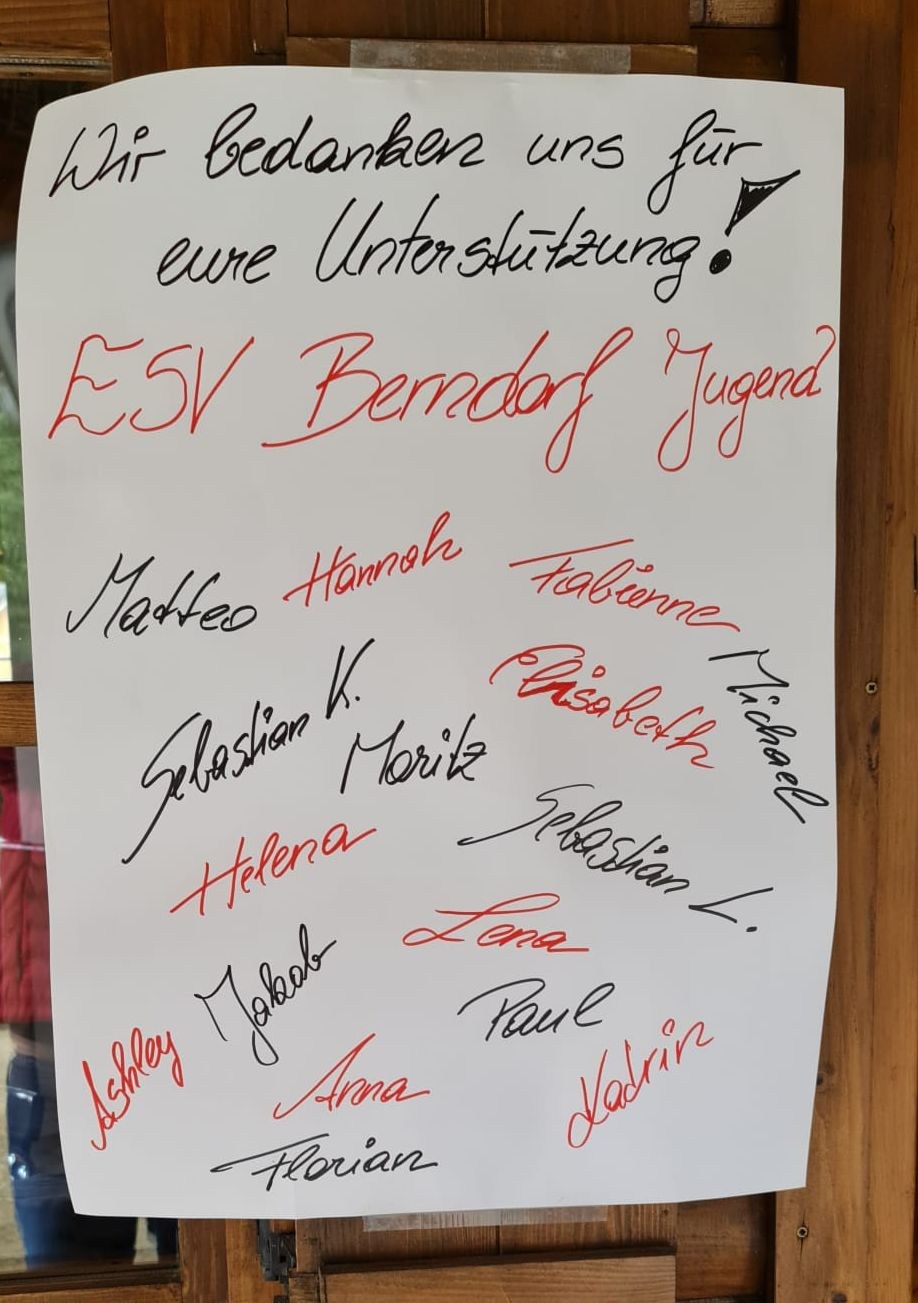 Wir bedanken uns für
eure Unterstützung!
ESV Berndorf Jugend
Matteo Hannah Fabienne
Michael
Elisabeth
Sebastian K.
Moritz
Sebastian L.
Helena
Lena
Jakob
Paul
Ashley
Anna
Kadrin
Florian